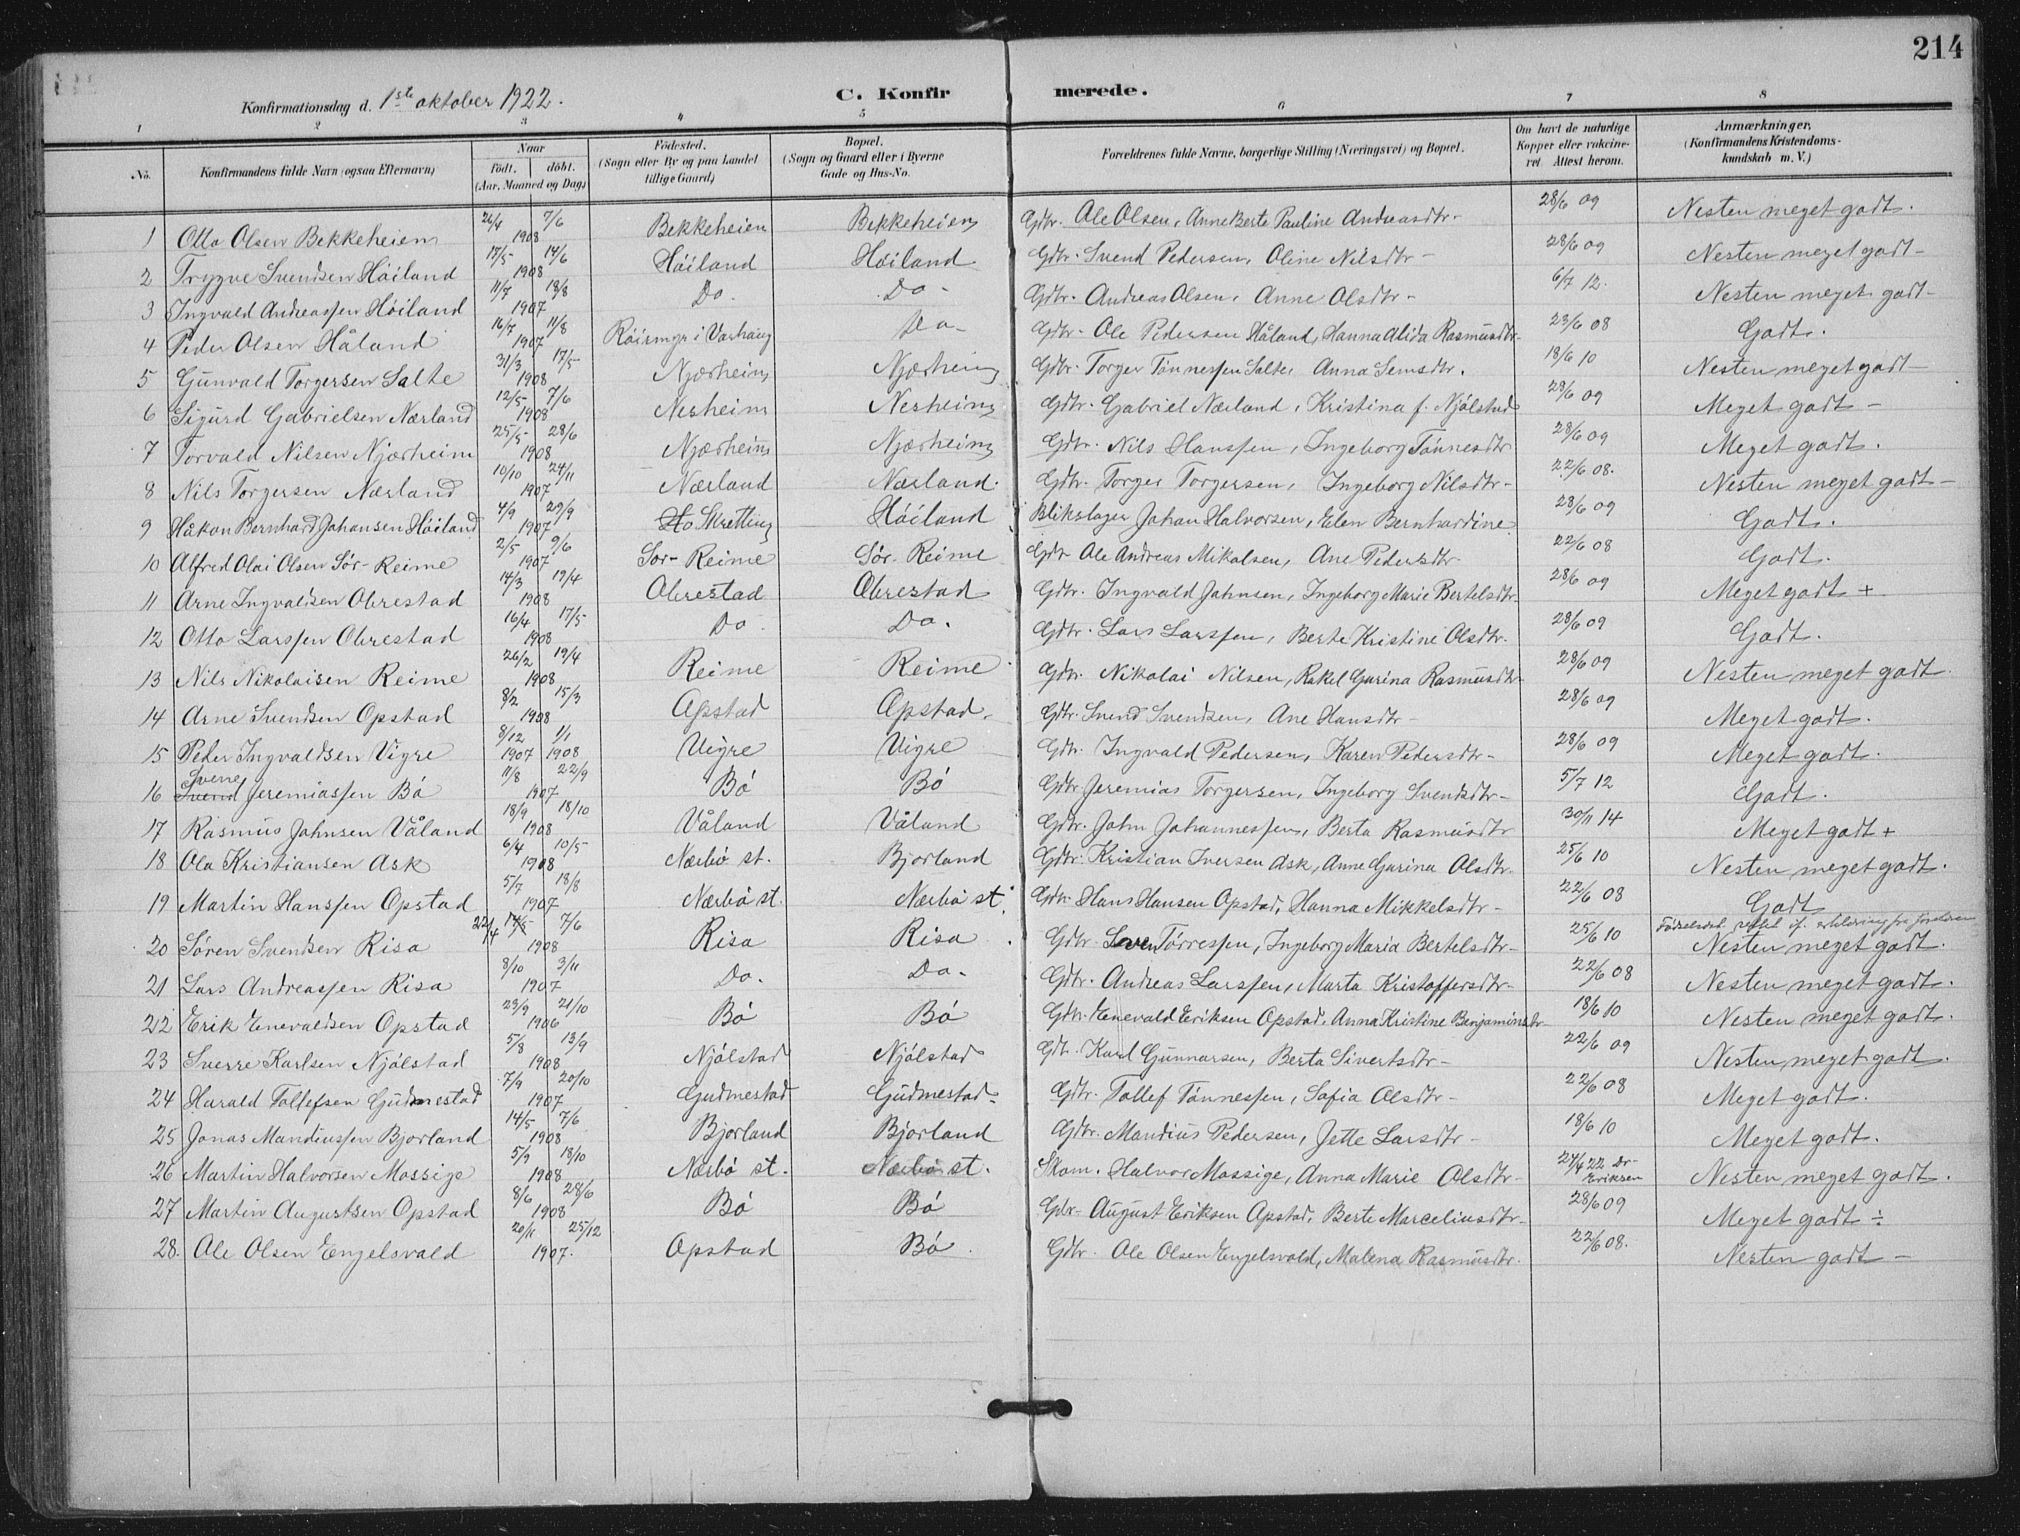 214
Konfirmationsdag d. 1ste oktober 1922. C. Konfir merede.
1 2 3 4 5 6 7 8
No. Konfirmandens fulde Navn (ogsaa Efternavn) Naar født. døbt. (Aar, Maaned og Dag) Fødested. (Sogn eller By og paa Landet tillige Gaard) Bopæl. (Sogn og Gaard eller i Byerne Gade og Hus-No. Forældrenes fulde Navne, borgerlige Stilling (Næringsvei) og Bopæl. Om havt de naturlige Kopper eller vaccineret. Attest herom. Anmærkninger. (Konfirmandens Kristendomskundskab m. V.)
1 Otto Olsen Bekkeheien 26/4 7/6 1908 Bekkeheien Bekkeheien Gdbr. Ole Olsen, Anne Berte Pauline Andreasdtr- 28/6 09 Nesten meget godt.
2 Trygve Svendsen Høiland 17/5- 14/6 1908 Høiland Høiland Gdbr. Svend Pedersen, Oline Nilsdtr- 28/6 09 Nesten meget godt-
3 Ingvald Andreassen Høiland 11/7 18/8 1907 Do. Do- Gdbr. Andreas Olsen, Anne Olsdtr- 6/7 12. Nesten meget godt-
4 Peder Olsen Håland 16/7 11/8 1907 Røismyr i Varhaug Do- Gdbr- Ole Pedersen Håland, Hanna Alida Rasmusdtr- 23/6 08 Godt.
5 Gunvald Torgersen Salte 31/3 17/5- 1908 Njærheim Njærheim Gdbr. Torger Tønnessen Salte, Anna Semsdtr. 18/6 10 Nesten meget godt-
6 Sigurd Gabrielsen Nærland 12/5- 7/6 1908 Nesheim Nesheim Gdbr. Gabriel Nærland, Kristina f. Njølstad 28/6 09 Meget godt-
7 Torvald Nilsen Njærheim 25/5- 28/6 1908 Njærheim Njærheim Gdbr. Nils Hanssen, Ingeborg Tønnesdtr 28/6 09 Meget godt.
8 Nils Torgersen Nærland 10/10 24/11 1907 Nærland Nærland. Gdbr. Torger Torgersen, Ingeborg Nilsdtr- 22/6 08. Nesten meget godt-
9 Håkon Bernhard Johansen Høiland 4/9 29/9 1907 Skretting Høiland Blikslager Johan Halvorsen, Elen Bernhardine 28/6 09 Godt.
10 Alfred Olai Olsen Sør-Reime 2/5- 9/6 1907 Sør-Reime Sør-Reime Gdbr Ole Andreas Mikalsen, Ane Pedersdtr- 22/6 08 Godt.
11 Arne Ingvaldsen Obrestad 14/3 19/4 1908 Obrestad Obrestad Gdbr. Ingvald Jahnsen, Ingeborg Marie Bertelsdtr- 28/6 09 Meget godt +
12 Otto Larssen Obrestad 16/4 17/5- 1908 Do. Do. Gdbr. Lars Larssen, Berte Kristine Olsdtr. 28/6 09 Godt.
13 Nils Nikolaisen Reime 26/2 19/4 1908 Reime Reime Gdbr. Nikolai Nilsen, Rakel Gurina Rasmusdtr- 28/6 09 Nesten meget godt.
14 Arne Svendsen Opstad 8/2 15/3 1908 Opstad Opstad. Gdbr. Svend Svendsen, Ane Hansdtr- 28/6 09 Meget godt.
15 Peder Ingvaldsen Vigre 8/12 1/1 1907 1908 Vigre Vigre Gdbr. Ingvald Pedersen, Karen Pedersdtr- 28/6 09 Meget godt.
16 Svend Sverre Jeremiassen Bø 11/8 22/9 1907 Bø Bø Gdbr. Jeremias Torgersen, Ingeborg Svendsdtr- 5/7 12 Godt.
17 Rasmus Jahnsen Våland 18/9 18/10 1908 Våland Våland Gdbr. John Johannessen, Berta Rasmusdtr 30/11 14 Meget godt +
18 Ola Kristiansen Ask 6/4 10/5- 1908 Nærbø st. Bjorland Gdbr. Kristian Iversen Ask, Anne Gurina Olsdtr. 25/6 10 Nesten meget godt.
19 Martin Hanssen Opstad 5/7 18/8 1907 Nærbø st. Nærbø st. Gdbr. Hans Hansen Opstad, Hanna Mikkelsdtr- 22/6 08 Godt
20 Søren Svendsen Risa 22/4 14/5- 7/6 1908 Risa Risa Gdbr. Sven Tørressen, Ingeborg Maria Bertelsdtr- 25/6 10 Fødselsdat. rettet if. erklæring fra forældrene Nesten meget godt.
21 Lars Andreassen Risa 8/10 3/11 1907 Do. Do- Gdbr. Andreas Larssen, Marta Kristoffersdtr- 22/6 08 Nesten meget godt.
22 Erik Enevaldsen Opstad 23/9 21/10 1906 Bø Bø Gdbr. Enevald Eriksen Opstad, Anna Kristine Benjaminsdtr 18/6 10 Nesten meget godt.
23 Sverre Karlsen Njølstad 5/8 13/9 1908 Njølstad Njølstad Gdb. Karl Gunnarsen, Berta Sivertsdtr- 22/6 09 Nesten meget godt.
24 Harald Tollefsen Gudmestad 7/9 20/10 1907 Gudmestad Gudmestad- Gdbr. Tollef Tønnessen, Sofia Olsdtr- 22/6 08 Meget godt.
25 Jonas Mandiussen Bjorland 14/5 7/6 1908 Bjorland Bjorland Gdbr. Mandius Pedersen, Jette Larsdtr- 18/6 10 Meget godt.
26 Martin Halvorsen Mossige 5/9 18/10 1908 Nærbø st. Nærbø st. Skom. Halvor Mossige, Anna Marie Olsdtr- 27/4 22 Dr- Eriksen Nesten meget godt.
27 Martin Augustsen Opstad 8/6 28/6 1908 Bø Bø Gdbr- August Eriksen Opstad, Berte Marceliusdtr- 28/6 09 Meget godt ÷
28. Ole Olsen Engelsvold 20/11 25/12 1907. Opstad Bø. Gdbr. Ole Olsen Engelsvold, Malena Rasmusdtr. 22/6 08. Nesten godt-